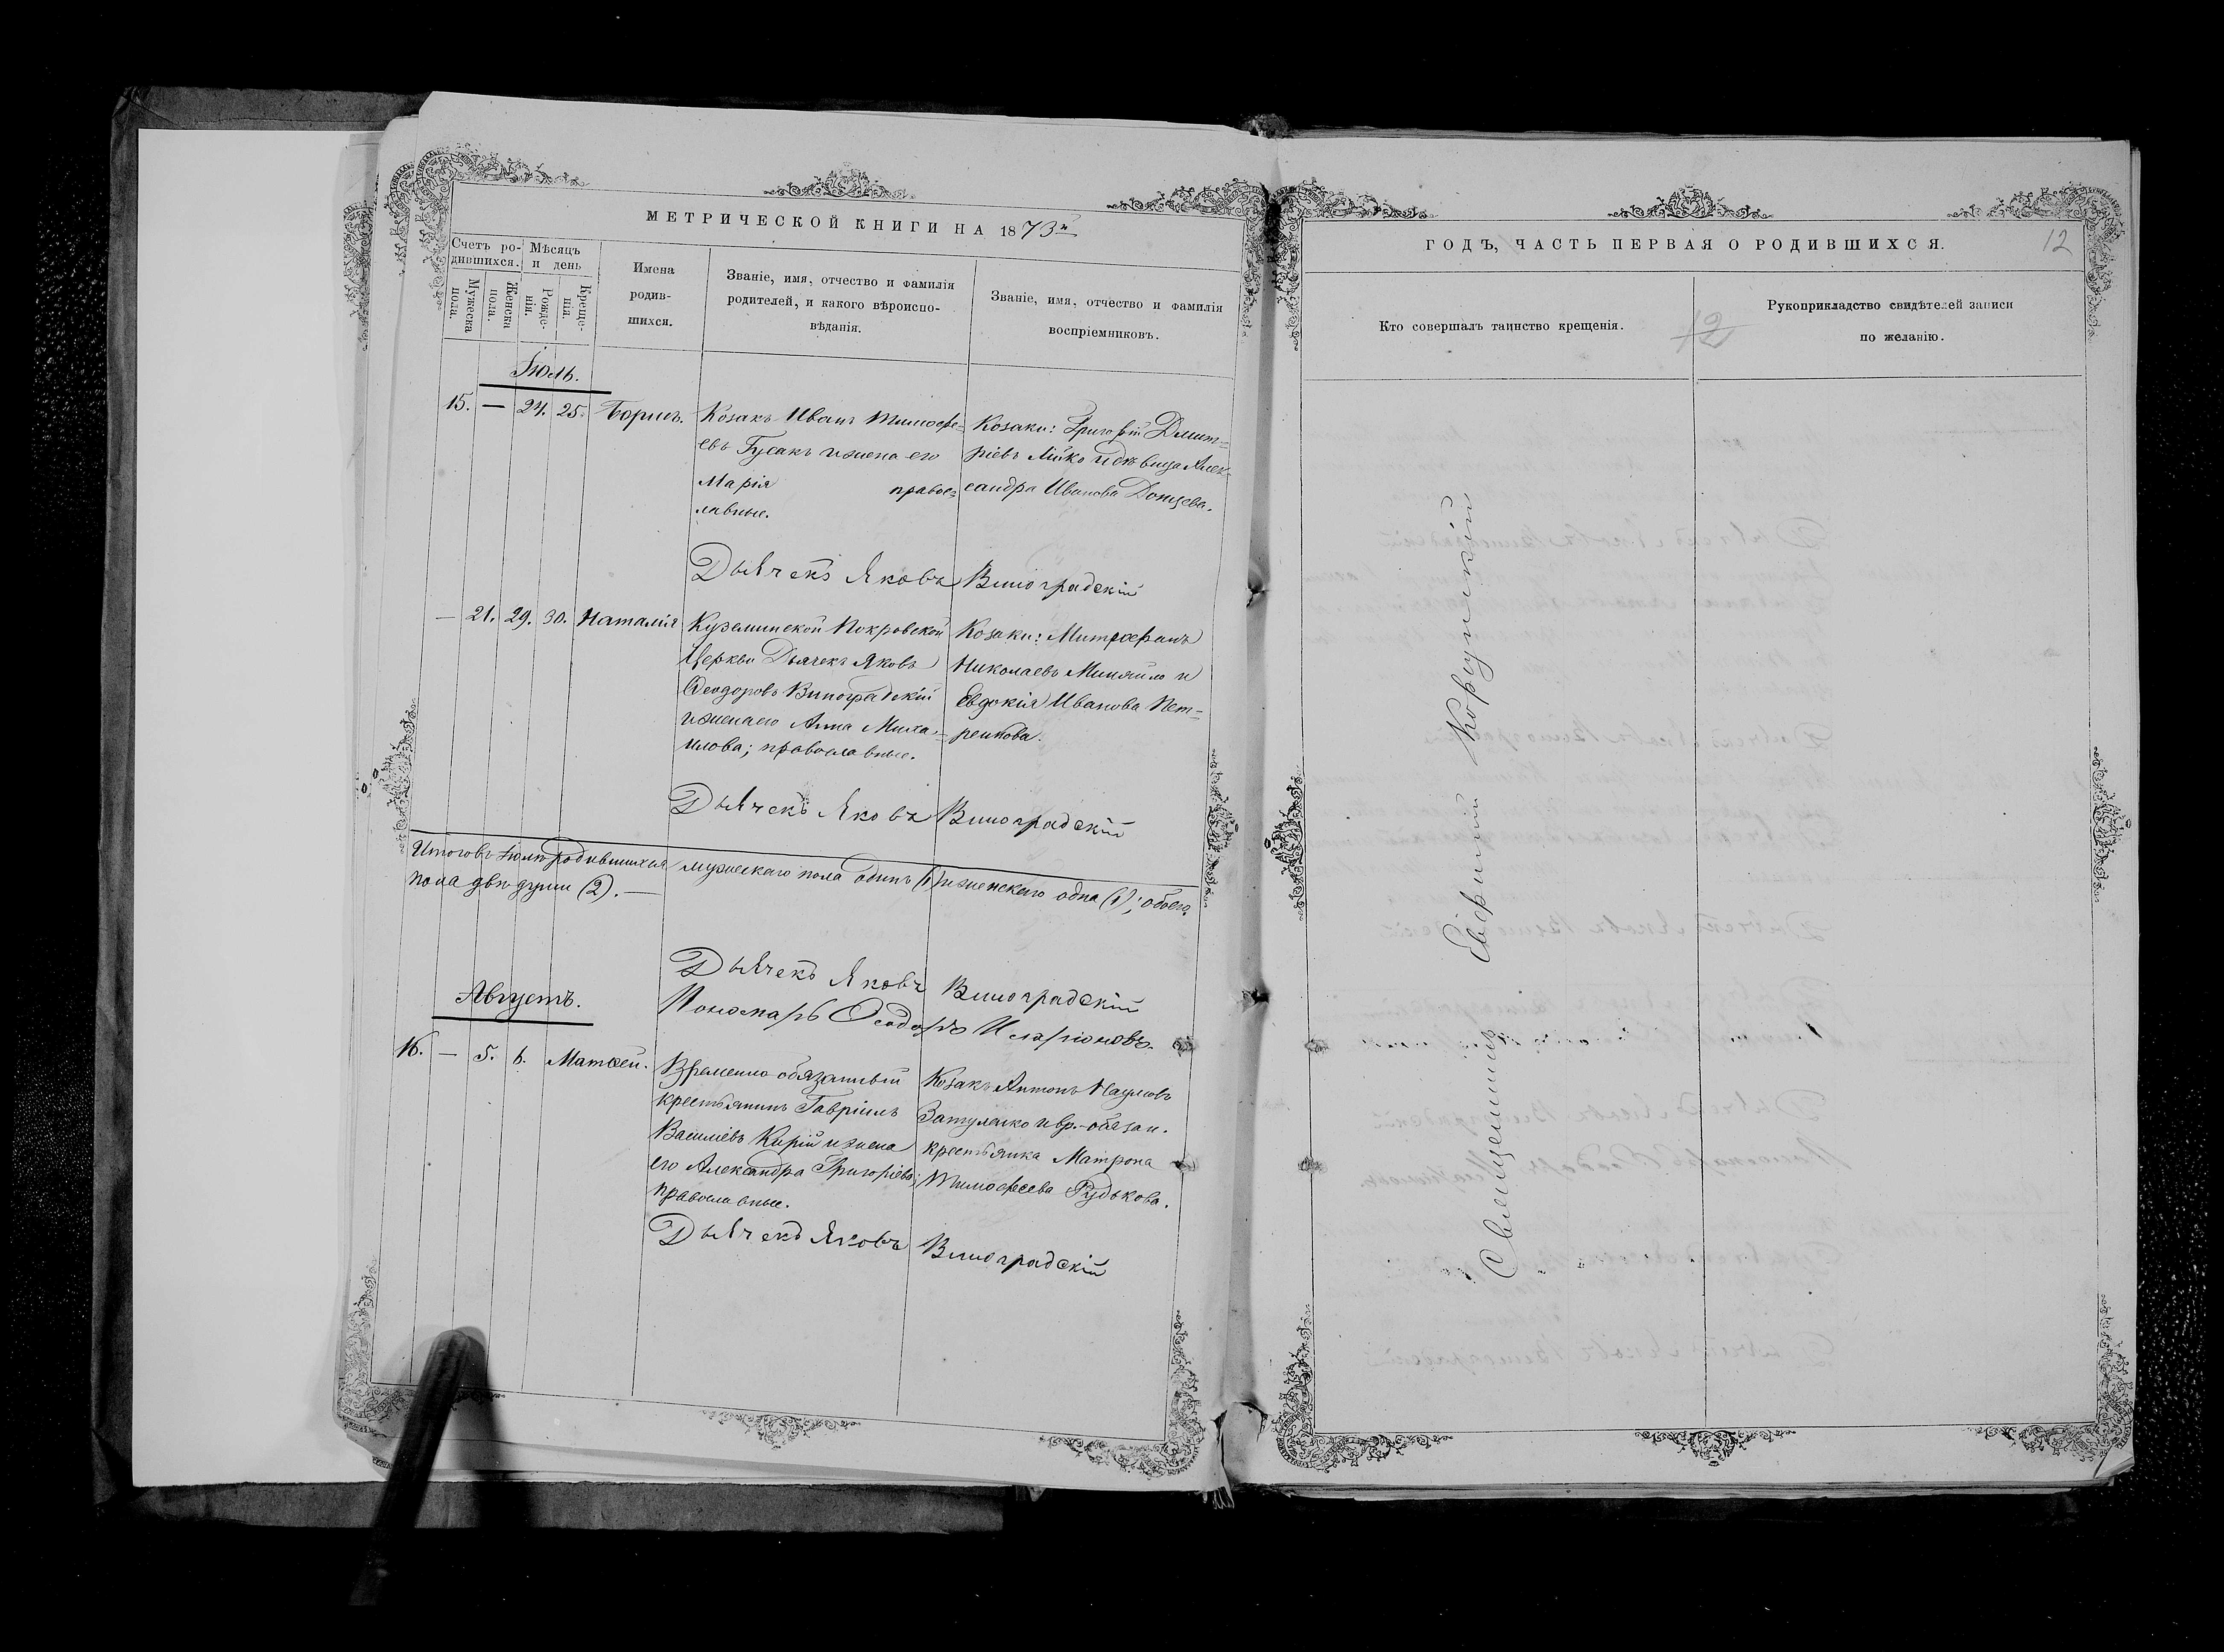 МЕТРИЧЕСКОЙ КНИГИ НА 1873й
Счетъ ро-
дившихся.
Мѣсяцъ
и день
Мужеска
пола.
Женска
пола.
Рожде-
нія.
Креще-
нія.
Имена
родив-
шихся.
Званіе, имя, отчество и фамилія
родителей, и какого вѣроиспо-
вѣданія.
Званіе, имя, отчество и фамилія
воспріемниковъ.
Іюль.
15. — 24. 25. Борисъ.
Козакъ Иванъ Тимофе=
евъ Гусакъ и жена его
Марія правос=
лавные.
Козаки: Григорій Димит=
ріевъ Лійко и дѣвица Алек=
сандра Иванова Донцева.
Дьячекъ Яковъ Виноградскій
— 21. 29. 30. Наталія
Куземинской Покровской
Церкви Дьячекъ Яковъ
Ѳеодоровъ Виноградскій
и жена его Анна Миха=
илова; православные.
Козаки: Митрофанъ
Николаевъ Миняйло и
Евдокія Иванова Пет=
ренкова.
Дьячекъ Яковъ Виноградскій
Итого въ Іюлѣ родившихся мужескаго пола одинъ (1) и женскаго одна (1); обоего
пола двѣ души (2). —
Дьячекъ Яковъ Виноградскій
Пономарь Ѳеодоръ Иларіоновъ.
Августъ.
16. — 5. 6. Матѳей.
Временно-обязанный
крестьянинъ Гавріилъ
Василіевъ Кирій и жена
его Александра Григоріева;
православные.
Козакъ Антонъ Наумовъ
Затуленко и вр.-обязан.
крестьянка Матрона
Тимофеева Рудькова.
Дьячекъ Яковъ Виноградскій
ГОДЪ, ЧАСТЬ ПЕРВАЯ О РОДИВШИХСЯ.
12
Кто совершалъ таинство крещенія.
12
Рукоприкладство свидѣтелей записи
по желанію.
Священникъ Евфимій